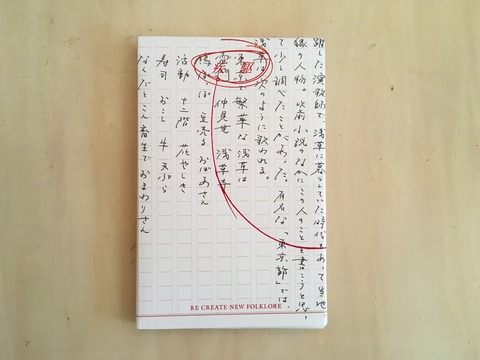 躍した演歌師で、浅草に暮らしていた時代もあって当地
縁の人物。以前小説のなかにこの人のことを書こうと思っ
て少し調べたことがあった。有名な「東京節」では、
浅草は次のように歌われる。
東京で繁華な浅草は
雷門 仲見世 浅草寺
鳩ぽっぽ 豆売る おばあさん
活動 十二階 花やしき
寿司 おこし 牛 天ぷら
なんだとこん畜生で おまわりさん
RE CREATE NEW FOLKLORE